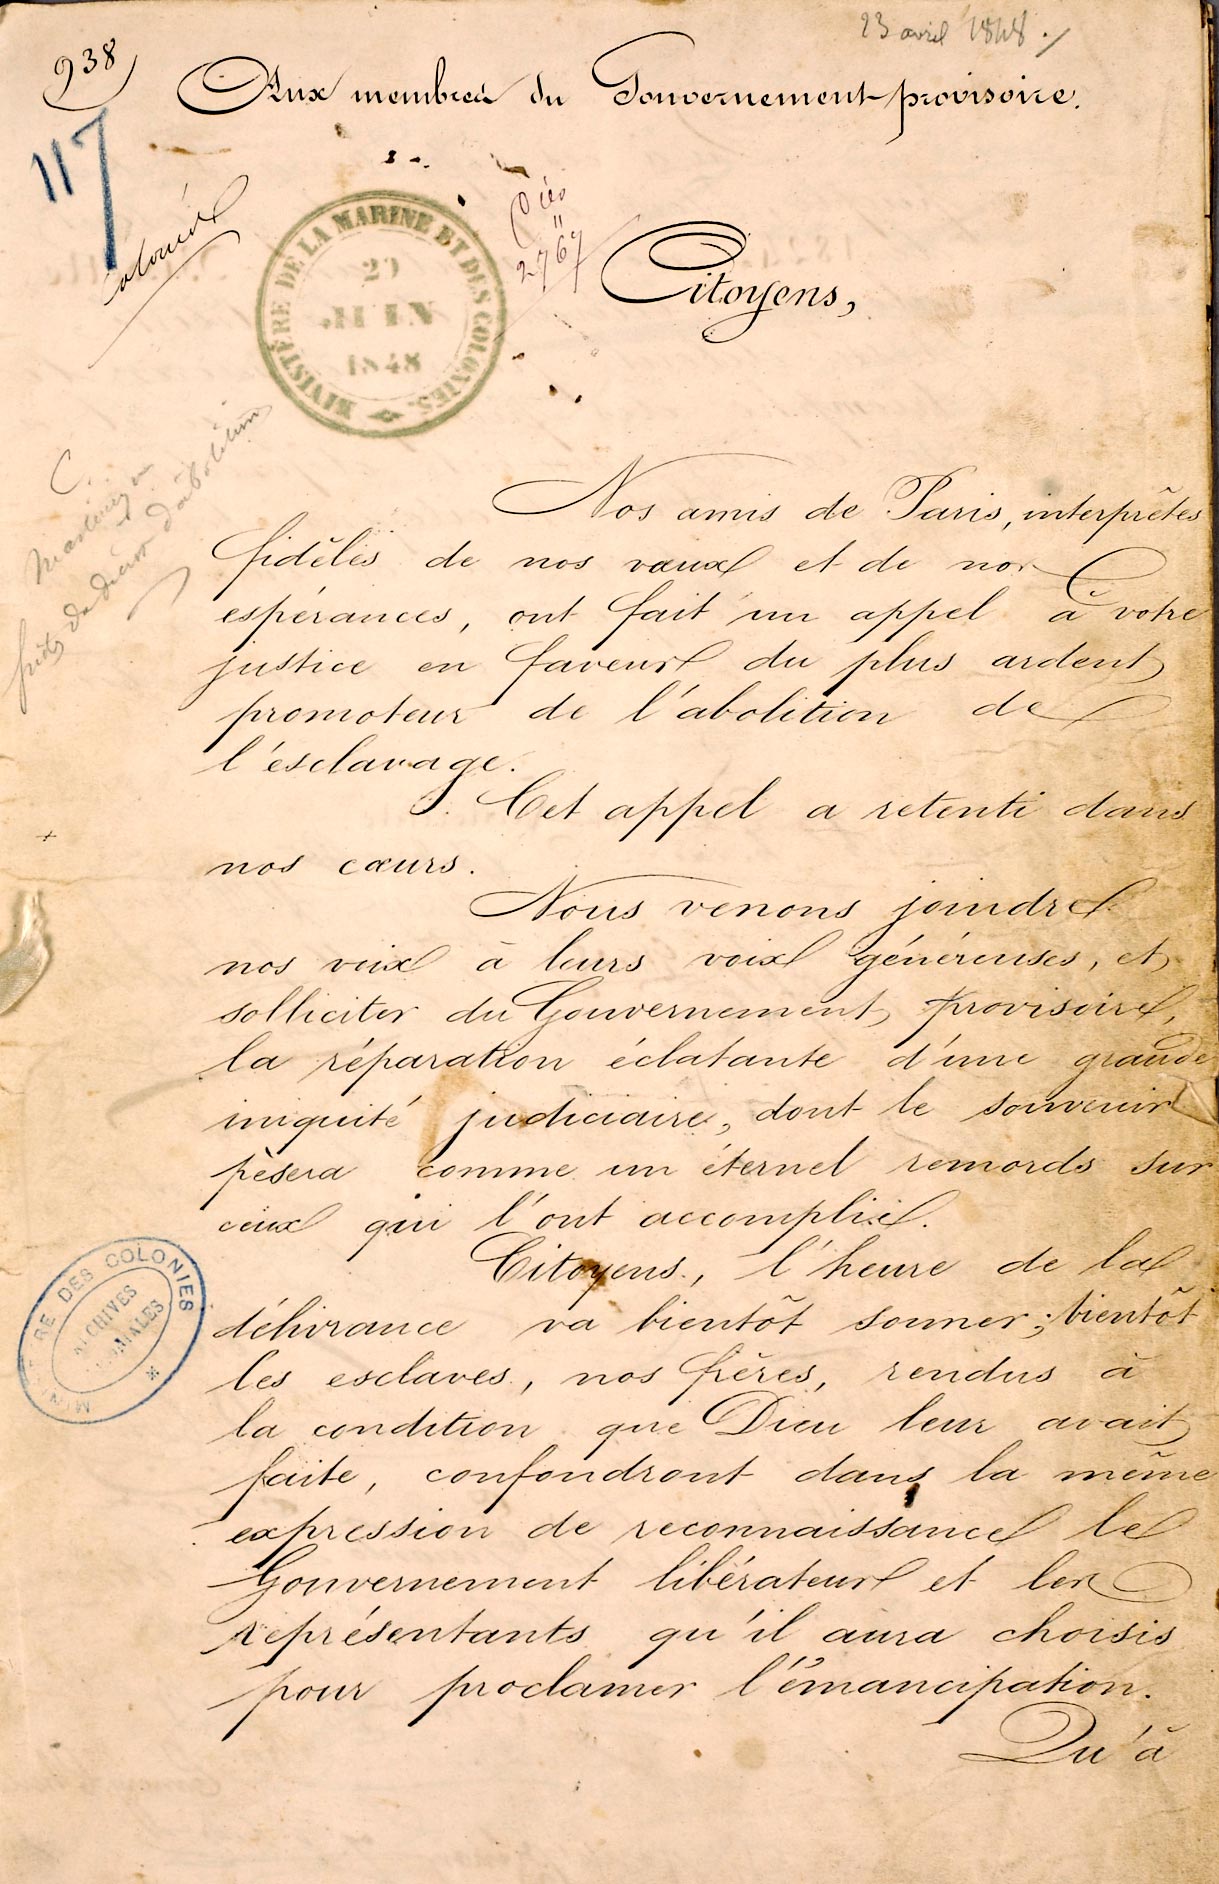 23 avril 1848.
938
Aux membres du Gouvernement provisoire.
117
MINISTÈRE DE LA MARINE ET DES COLONIES.
JUIN
1848
2767
Citoyens,
C.
d'abolition
Nos amis de Paris, interprêtes
fidèles de nos vœux et de nos
espérances, ont fait un appel à votre
justice en faveur du plus ardent
promoteur de l'abolition de
l'esclavage.
Cet appel a retenti dans
nos cœurs.
Nous venons joindre
nos voix à leurs voix généreuses, et
solliciter du Gouvernement provisoire,
la réparation éclatante d'une grande
iniquité judiciaire, dont le souvenir
pèsera comme un éternel remords sur
ceux qui l'ont accomplie.
Citoyens, l'heure de la
délivrance va bientôt sonner; bientôt
les esclaves, nos frères, rendus à
la condition que Dieu leur avait
faite, confondront dans la même
expression de reconnaissance le
Gouvernement libérateur et les
représentants qu'il aura choisis
pour proclamer l'émancipation.
Qu'à
RE DES COLONIES
ARCHIVES